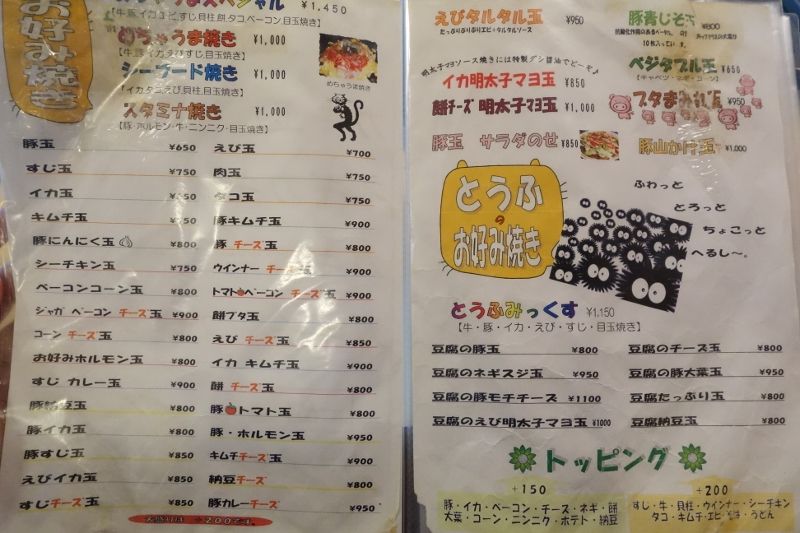 お好み焼き
スペシャル ¥1,450
【牛 豚 イカ エビ すじ 貝柱 餅 タコ ベーコン 目玉焼き】
めちゃうま焼き ¥1,000
【牛 豚 イカ えび すじ 目玉焼き】
シーフード焼き ¥1,000
【イカ タコ えび 貝柱 目玉焼き】
スタミナ焼き ¥1,000
【豚・ホルモン・牛・ニンニク・目玉焼き】
めちゃうま焼き
豚玉 ¥650
すじ玉 ¥750
イカ玉
キムチ玉
豚にんにく玉 ¥800
シーチキン玉 ¥750
ベーコンコーン玉 ¥800
ジャガ ベーコン チーズ玉 ¥900
コーン チーズ玉 ¥800
お好みホルモン玉 ¥800
すじ カレー玉 ¥900
豚納豆玉 ¥800
豚イカ玉 ¥800
豚すじ玉 ¥850
えびイカ玉 ¥850
すじチーズ玉 ¥850
えび玉 ¥700
肉玉 ¥750
タコ玉 ¥750
豚キムチ玉 ¥900
豚 チーズ玉 ¥800
ウインナー チーズ玉 ¥900
トマトベーコン チーズ玉 ¥900
餅ブタ玉 ¥800
えび チーズ玉 ¥850
イカ キムチ玉 ¥900
餅 チーズ玉 ¥800
豚トマト玉 ¥800
豚・ホルモン玉 ¥950
キムチチーズ玉 ¥900
納豆チーズ ¥800
豚カレーチーズ ¥950
+200です。
えびタルタル玉 ¥950
たっぷりぷりぷりエビ・タルタルソース
豚青じそ玉 ¥800
10枚入っています。
明太子マヨソース焼きには特製ダシ醤油でど～ぞ♪
ベジタブル玉 ¥650
イカ明太子マヨ玉 ¥850
餅チーズ 明太子マヨ玉 ¥1,000
ブタまみれ玉 ¥950
豚玉 サラダのせ ¥850
豚山かけ玉 ¥1,000
とうふのお好み焼き
ふわっと
とろっと
ちょこっと
へるし～。
とうふみっくす ¥1,150
【牛・豚・イカ・えび・すじ・目玉焼き】
豆腐の豚玉 ¥800
豆腐のネギスジ玉 ¥950
豆腐の豚モチチーズ ¥1100
豆腐のえび明太子マヨ玉 ¥1000
豆腐のチーズ玉 ¥800
豆腐の豚大葉玉 ¥950
豆腐たっぷり玉 ¥800
豆腐納豆玉 ¥800
トッピング
+150
豚・イカ・ベーコン・チーズ・ネギ・餅
大葉・コーン・ニンニク・ポテト・納豆
+200
すじ・牛・貝柱・ウインナー・シーチキン
タコ・キムチ・エビ・うどん